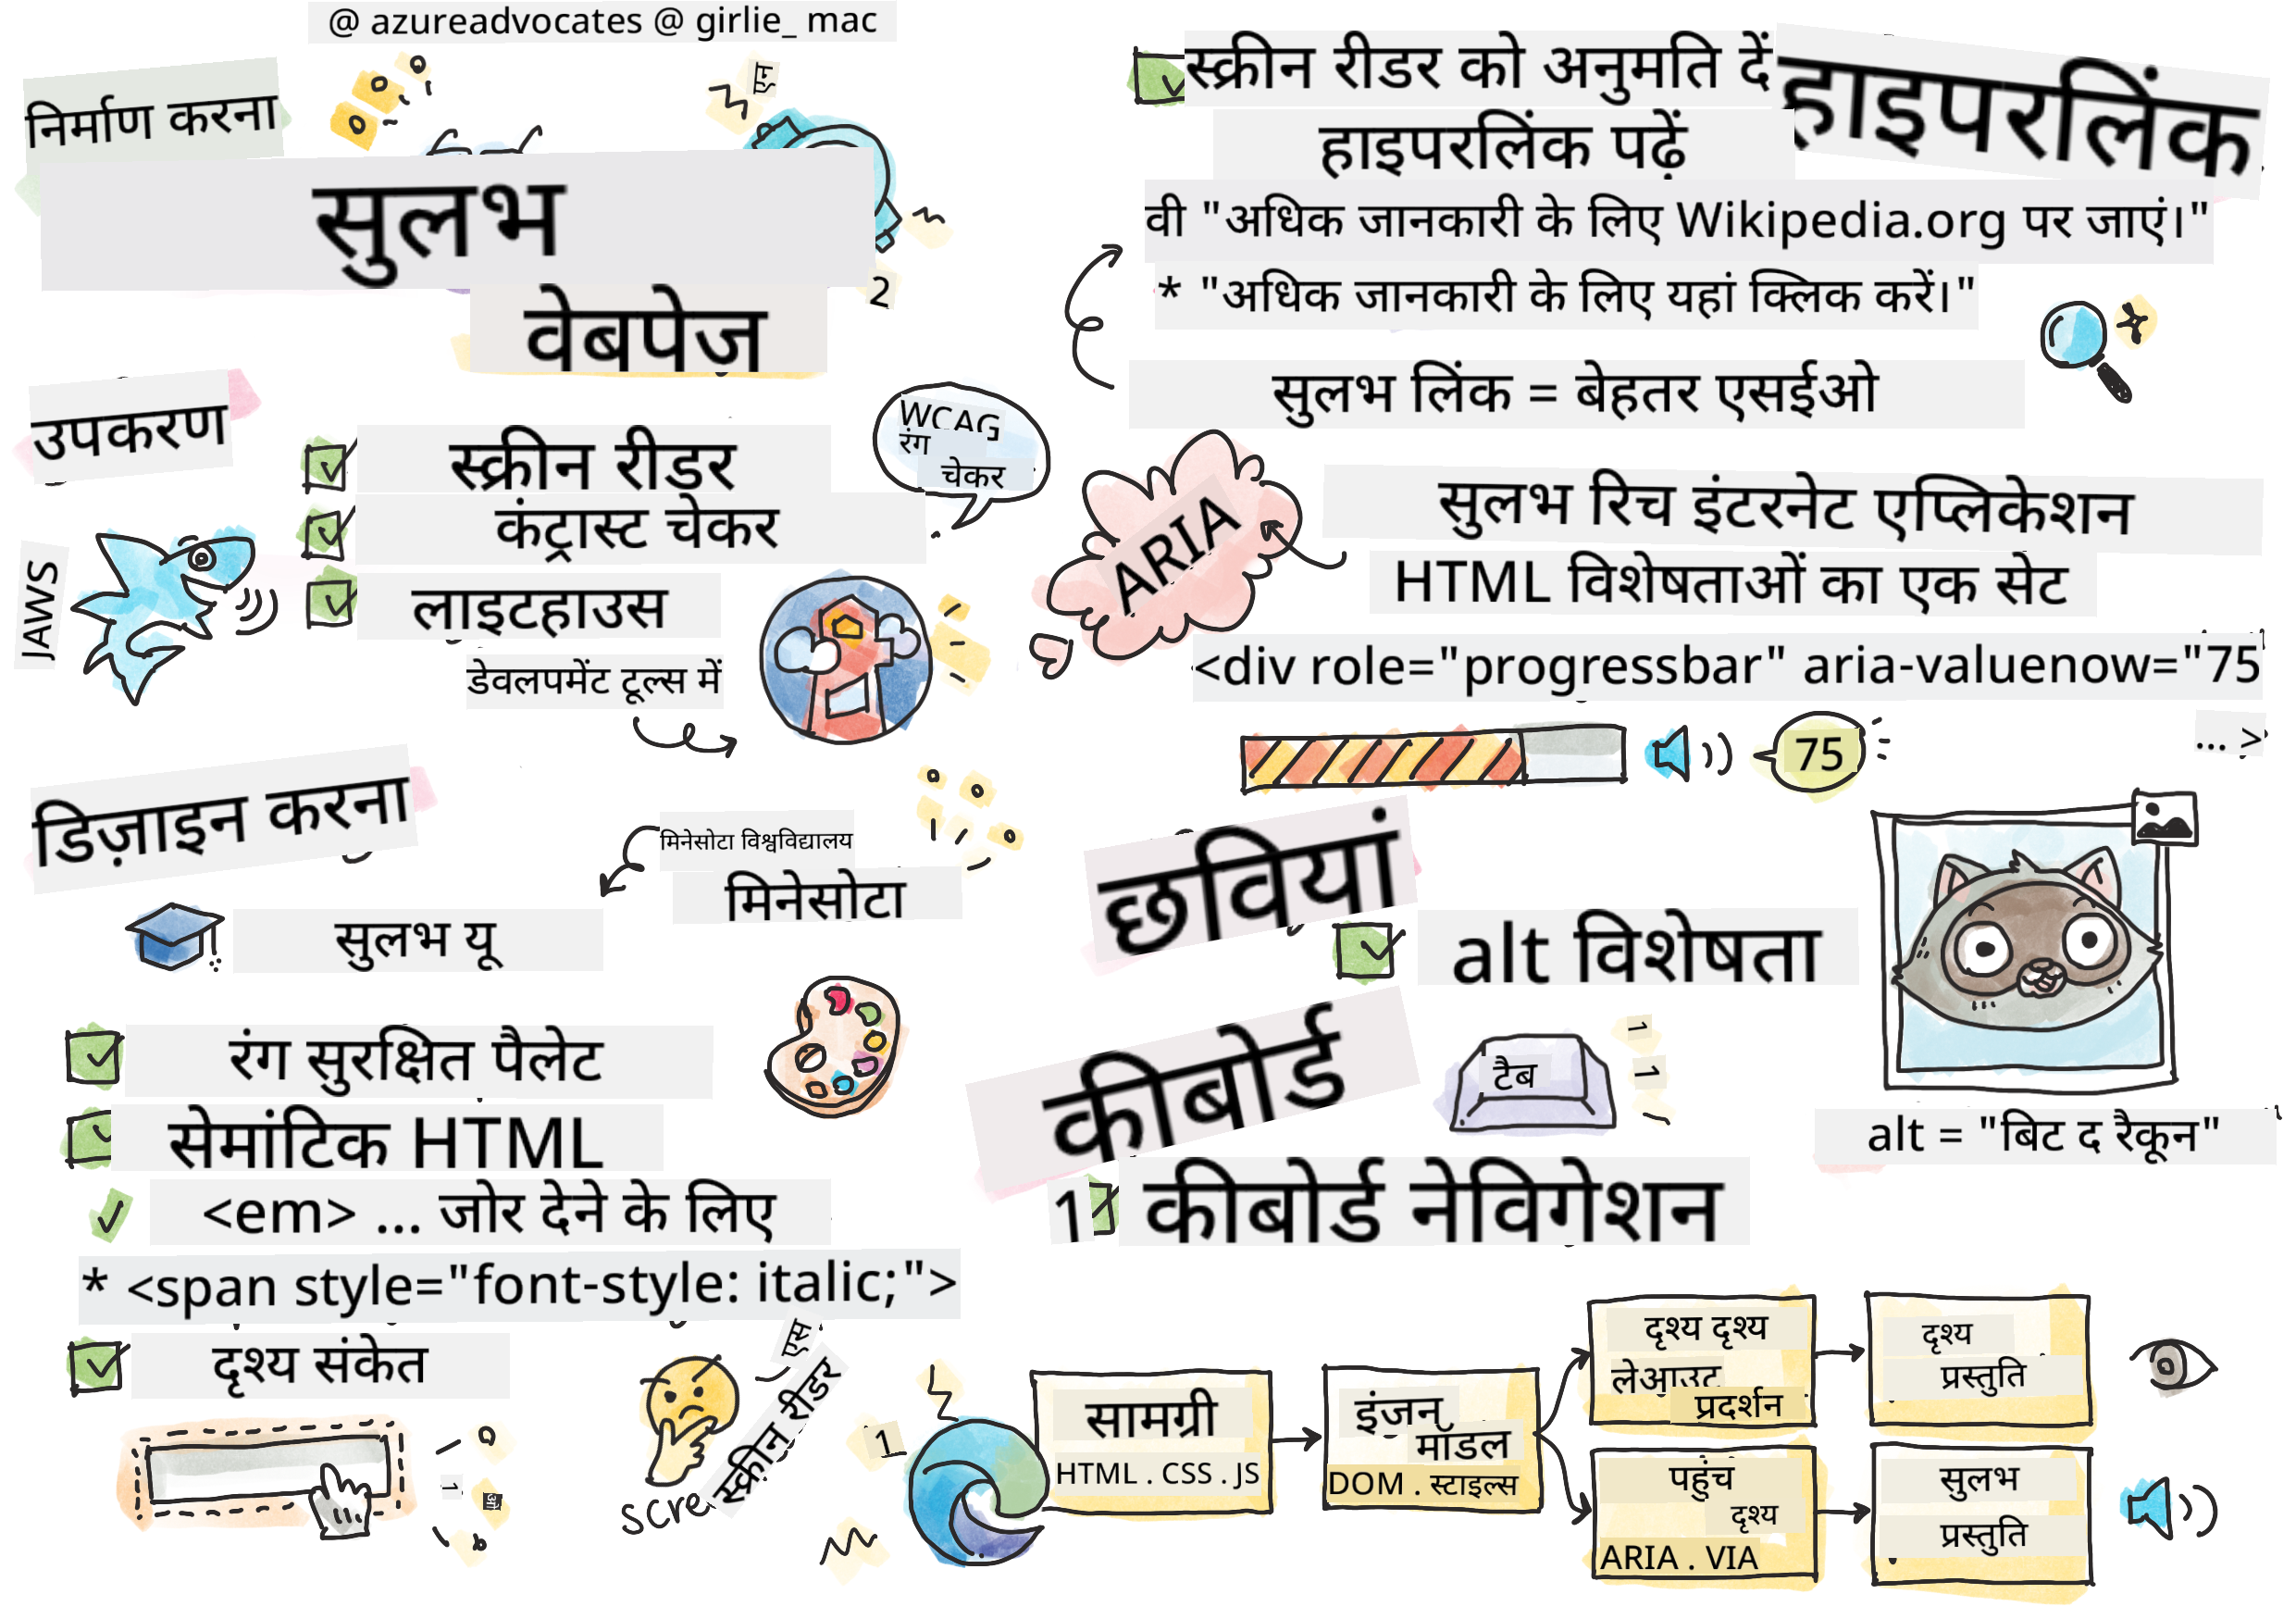 @ azureadvocates @ girlie_ mac
निर्माण करना
एन
सुलभ
2
वेबपेज
उपकरण
स्क्रीन रीडर
कंट्रास्ट चेकर
लाइटहाउस
डेवलपमेंट टूल्स में
JAWS
WCAG
रंग
चेकर
डिज़ाइन करना
मिनेसोटा विश्वविद्यालय
मिनेसोटा
सुलभ यू
रंग सुरक्षित पैलेट
सेमांटिक HTML
<em> ... जोर देने के लिए
* <span style="font-style: italic;">
दृश्य संकेत
1
एस
स्क्रीन रीडर
scre
स्क्रीन रीडर को अनुमति दें
हाइपरलिंक पढ़ें
हाइपरलिंक
वी "अधिक जानकारी के लिए Wikipedia.org पर जाएं।"
* "अधिक जानकारी के लिए यहां क्लिक करें।"
सुलभ लिंक = बेहतर एसईओ
ARIA
सुलभ रिच इंटरनेट एप्लिकेशन
HTML विशेषताओं का एक सेट
<div role="progressbar" aria-valuenow="75
... >
75
छवियां
alt विशेषता
alt = "बिट द रैकून"
कीबोर्ड
टैब
1
1
1
कीबोर्ड नेविगेशन
1
सामग्री
HTML . CSS . JS
इंजन
मॉडल
DOM . स्टाइल्स
दृश्य दृश्य
लेआउट
प्रदर्शन
दृश्य
प्रस्तुति
पहुंच
दृश्य
ARIA . VIA
सुलभ
प्रस्तुति